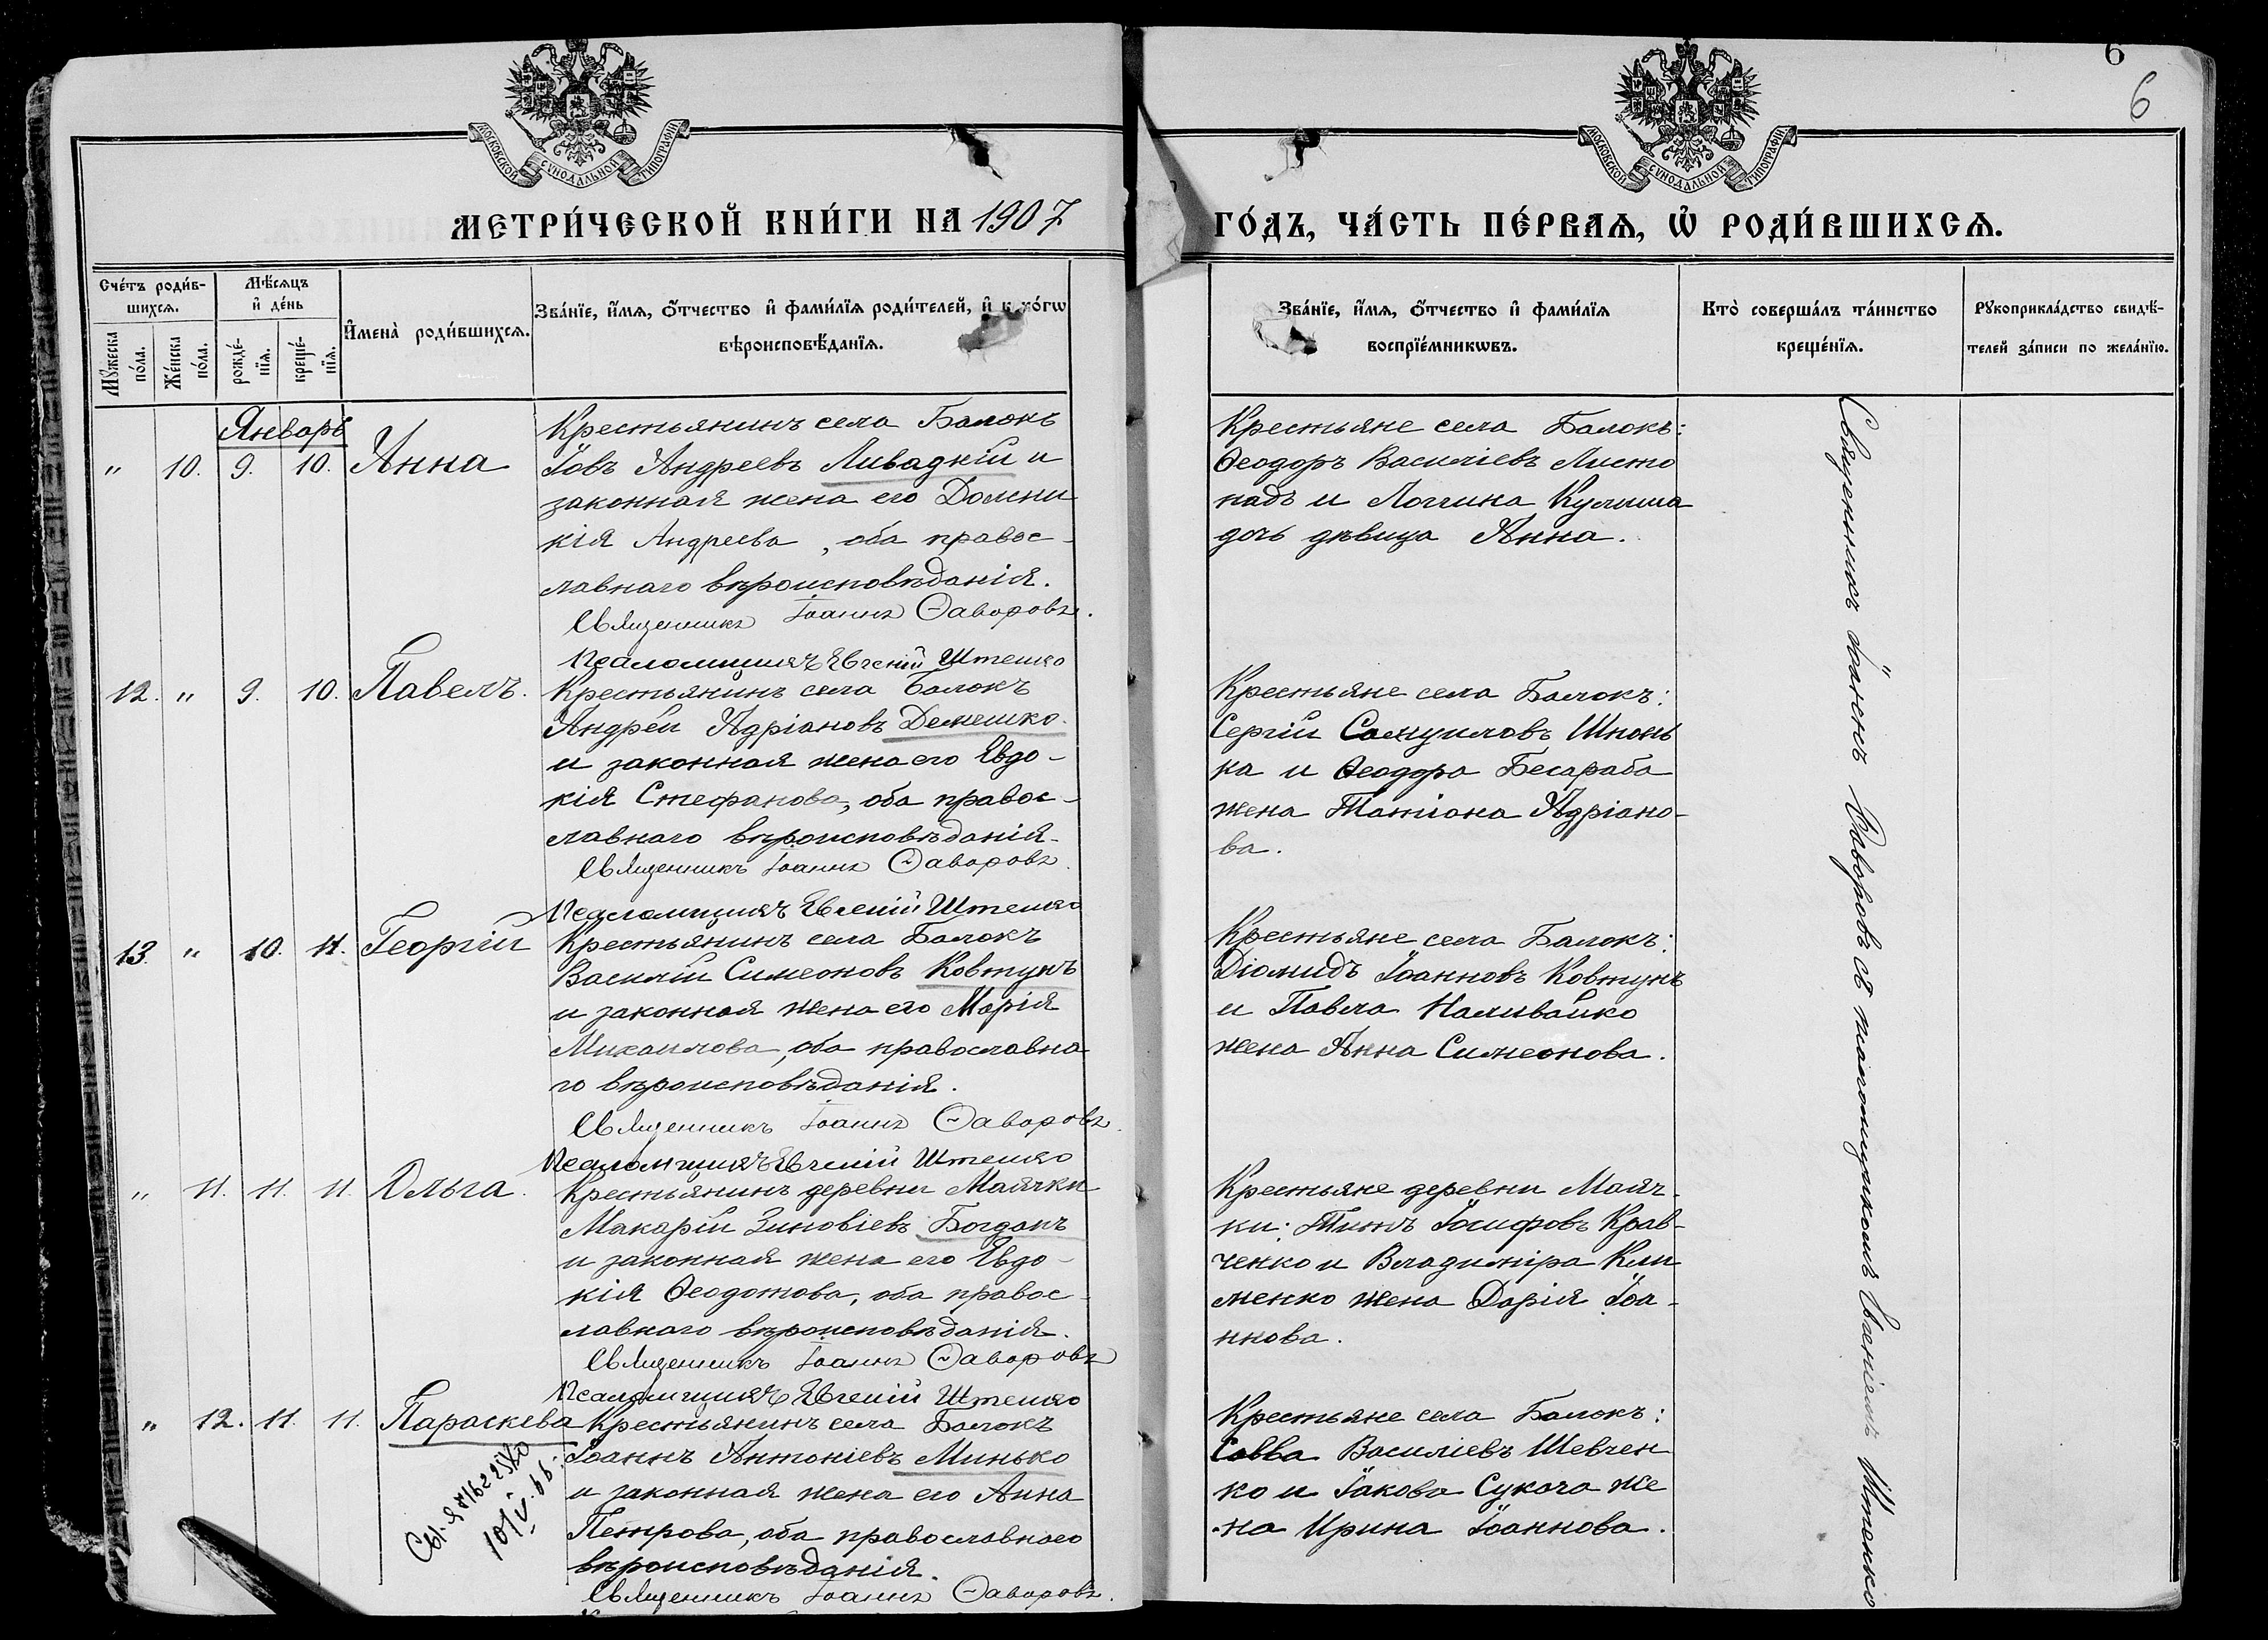 6
6
МОСКОВСКОЙ СѴНОДАЛЬНОЙ ТИПОГРАФІИ
МОСКОВСКОЙ СѴНОДАЛЬНОЙ ТИПОГРАФІИ
МЕТРИ́ЧЕСКОЙ КНИ́ГИ НА 1907
ГО́ДЪ, ЧА́СТЬ ПЕ́РВАѦ, Ѡ҆ РОДИ́ВШИХСѦ.
Сче́тъ роди́в-
шихсѧ.
Мꙋ́жеска по́ла.
Же́нска по́ла.
Мѣ́сѧцъ
и҆ де́нь
рожде́-
нїѧ.
креще́-
нїѧ.
И҆мена̀ роди́вшихсѧ.
Зва́нїе, и҆́мѧ, ѻ҆́тчество и҆ фами́лїѧ роди́телей, и҆ к хо́гѡ
вѣроисповѣ́данїѧ.
Зва́нїе, и҆́мѧ, ѻ҆́тчество и҆ фами́лїѧ
воспрїе́мникѡвъ.
Кто̀ соверша́лъ та́инство
креще́нїѧ.
Рꙋкоприкла́дство свидѣ́-
телей за́писи по жела́нїю.
Январь
" 10. 9. 10. Анна
Крестьянинъ села Балокъ
Іовъ Андреевъ Ливадній и
законная жена его Домни
кія Андреева, оба правос-
лавнаго вѣроисповѣданія.
Священникъ Іоаннъ Ѳаворовъ.
Псаломщикъ Евгеній Штенко
Крестьяне села Балокъ:
Ѳеодоръ Василіевъ Листо
падъ и Логгина Кулиша
дочь дѣвица Анна.
12. " 9. 10. Павелъ.
Крестьянинъ села Балокъ
Андрей Адріановъ Демешко
и законная жена его Евдо-
кія Стефанова, оба правос-
лавнаго вѣроисповѣданія.
Священникъ Іоаннъ Ѳаворовъ.
Псаломщикъ Евгеній Штенко
Крестьяне села Балокъ:
Сергій Самуиловъ Шпонь
ка и Ѳеодора Бесараба
жена Татіана Адріано-
ва.
13. " 10. 11. Георгій
Крестьянинъ села Балокъ
Василій Симеоновъ Ковтунъ
и законная жена его Марія
Михаилова, оба православна
го вѣроисповѣданія.
Священникъ Іоаннъ Ѳаворовъ.
Псаломщикъ Евгеній Штенко
Крестьяне села Балокъ:
Діомидъ Іоанновъ Ковтунъ
и Павла Наливайко
жена Анна Симеонова.
" 11. 11. 11. Ольга.
Крестьянинъ деревни Маячки
Макарій Зиновіевъ Богданъ
и законная жена его Евдо-
кія Ѳеодотова, оба правос-
лавнаго вѣроисповѣданія.
Священникъ Іоаннъ Ѳаворовъ
Псаломщикъ Евгеній Штенко
Крестьяне деревни Маяч-
ки: Титъ Іосифовъ Крав-
ченко и Владиміра Кли
менко жена Дарія Іоа-
ннова.
" 12. 11. 11. Параскева
Крестьянинъ села Балокъ
Іоаннъ Антоніевъ Минько
и законная жена его Анна
Петрова, оба православнаго
вѣроисповѣданія.
Священникъ Іоаннъ Ѳаворовъ.
Крестьяне села Балокъ:
Савва Василіевъ Шевчен
ко и Іакова Сукача же
на Ирина Іоаннова.
Священникъ Іоаннъ Ѳаворовъ съ псаломщикомъ Евгеніемъ Штенко